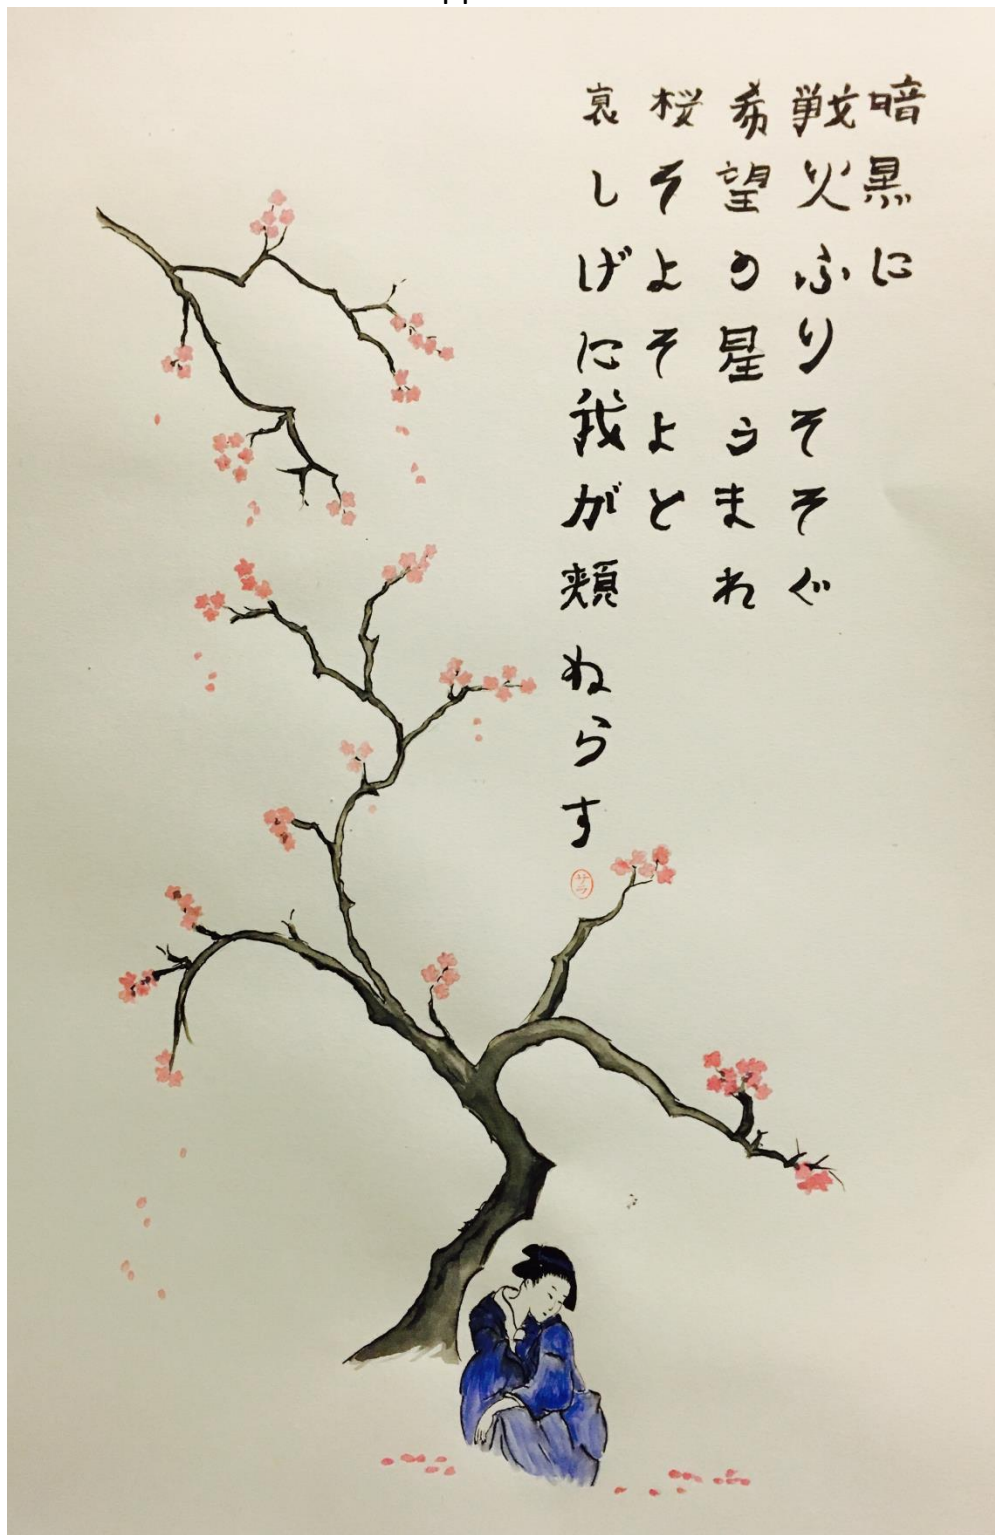 暗黒に
戦火ふりそそぐ
希望の星うまれ
桜そよそよと
哀しげに我が頬ぬらす
サラ